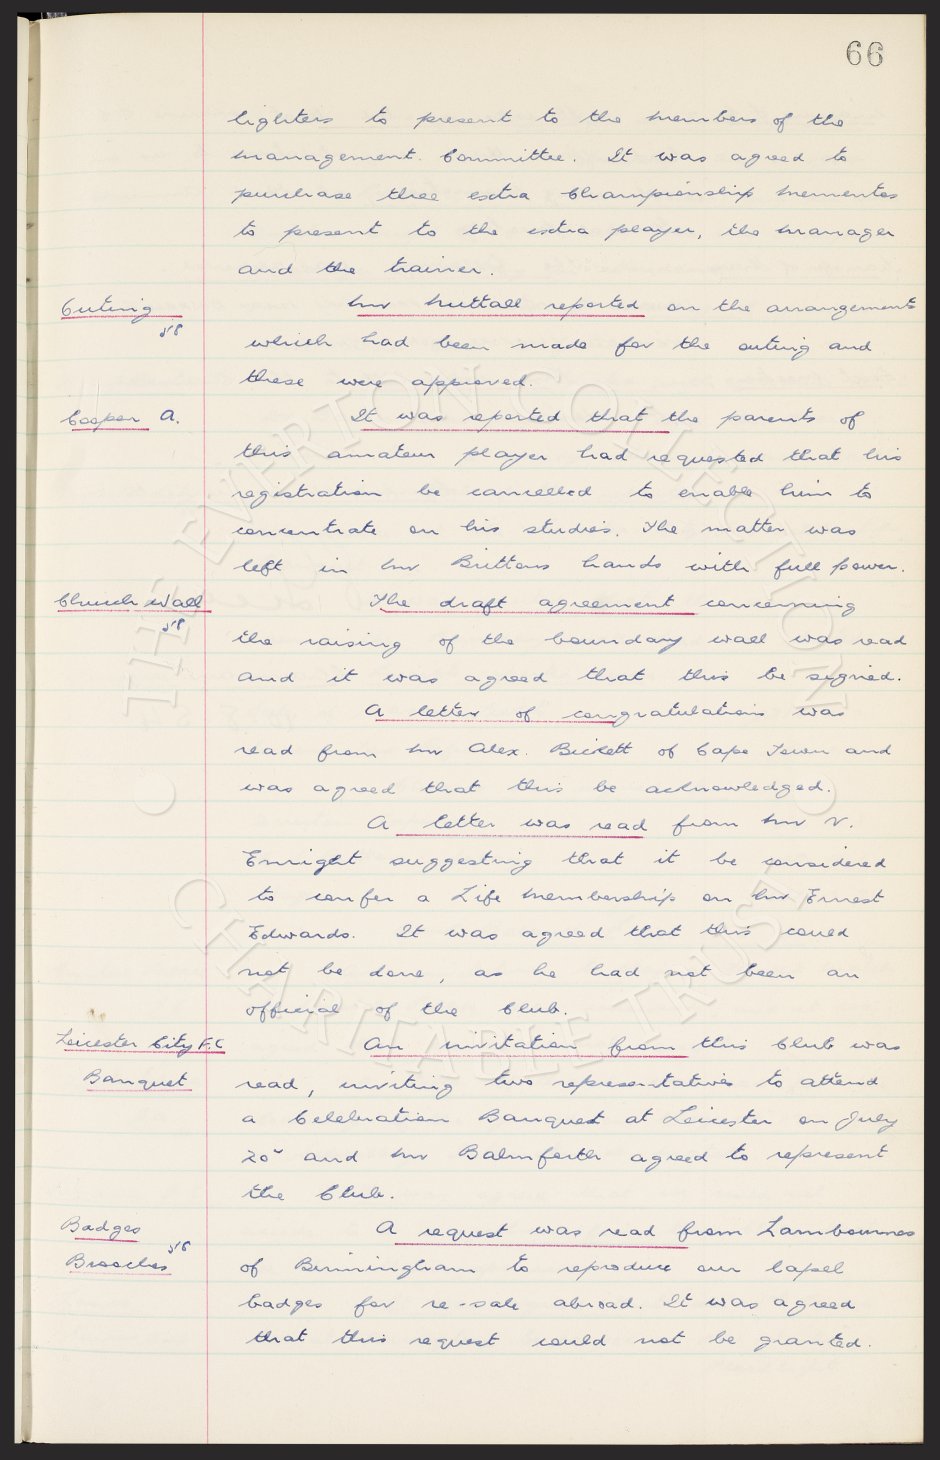 66
lighters to present to the members of the
Management Committee. It was agreed to
purchase three extra Championship mementos
to present to the extra player, the manager
and the trainer.
Outing
Mr Nuttall reported on the arrangements
which had been made for the outing and
these were approved.
Cooper A.
It was reported that the parents of
this amateur player had requested that his
registration be cancelled to enable him to
concentrate on his studies. The matter was
left in Mr Brittons hands with full power.
Church Wall
The draft agreement concerning
the raising of the boundary wall was read
and it was agreed that this be signed.
A letter of congratulations was
read from Mr Alex. Bickett of Cape Town and
was agreed that this be acknowledged.
A letter was read from Mr V.
Enright suggesting that it be considered
to confer a Life Membership on Mr Ernest
Edwards. It was agreed that this could
not be done, as he had not been an
official of the Club.
Leicester City F.C
Banquet
An invitation from this Club was
read, inviting two representatives to attend
a Celebration Banquet at Leicester on July
20 and Mr Balmforth agreed to represent
the Club.
Badges
Brooches
A request was read from Lambournes
of Birmingham to reproduce our lapel
badges for re-sale abroad. It was agreed
that this request could not be granted.
THE EVERTON COLLECTION
CHARITABLE TRUST